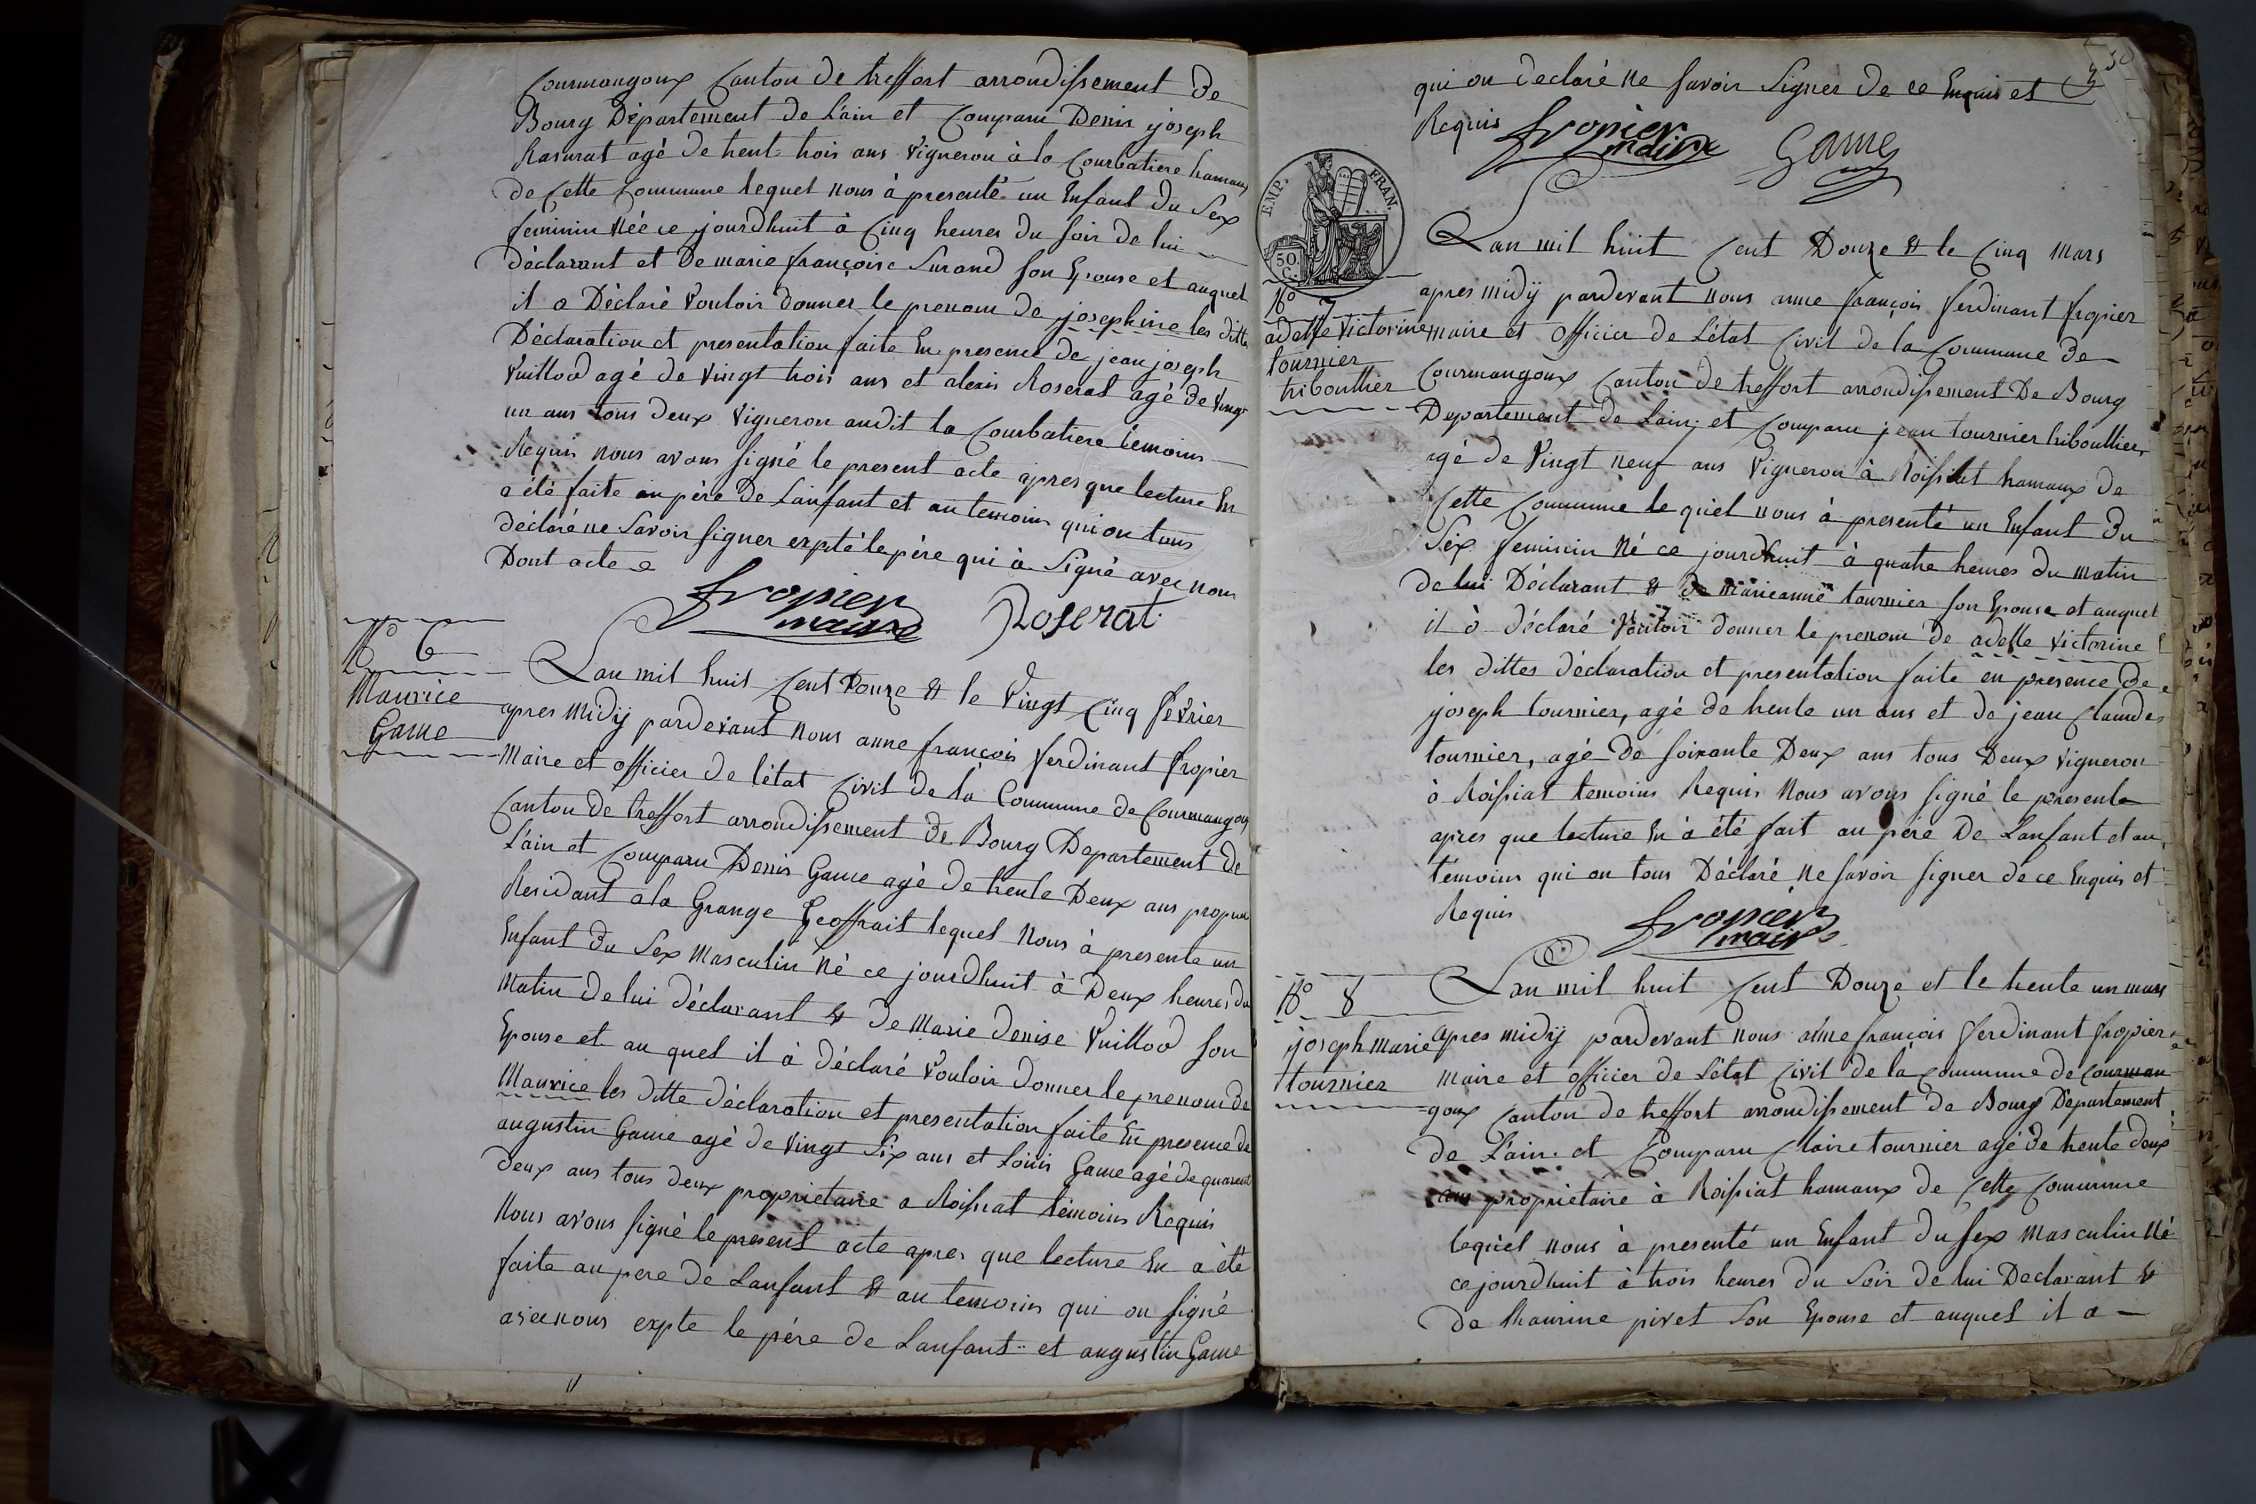 Courmangoux Canton de treffort arrondissement de
Bourg Département de L'ain et Comparu Denis joseph
Rasurat agé de trent trois ans Vigneron à la Courbatiere hamaux
de Cette Commune lequel nous à presenté un Enfant du Sex
feminin Née ce jourdhuit à Cinq heures du soir de lui
déclarant et de marie françoise Surand son Epouse et auquel
il a Déclaré Vouloir donner le prenom de josephine les ditte
Déclaration et presentation faite En presence de jean joseph
Vuillod agé de Vingt trois ans et alexis Roserat agé de Vingt
un ans tous deux Vigneron audit la Courbatiere témoins
Requis nous avons signé le present acte apres que lecture En
a été faite au père de Lanfant et au temoins qui on tous
déclaré ne Savoir signer expté le père qui à Signé avec nous
Dont acte
fropier
maire
Roserat
No 6
Maurice
Game
Lan mil huit Cent Douze & le Vingt Cinq fevrier
apres midÿ pardevant Nous anne françois ferdinant fropier
Maire et officier de létat Civil de la Commune de Courmangoux
Canton de treffort arrondissement de Bourg Departement de
L'ain et Comparu Denis Game agé de trente Deux ans propre
Residant a la Grange Geoffrait lequel Nous à presenté un
Enfant du Sex Masculin Né ce jourdhuit à Deux heures du
Matin de lui déclarant & de Marie denise Vuillod son
Epouse et au quel il à déclaré Vouloir donner le prenom de
Maurice les ditte déclaration et presentation faite En presence de
augustin Game agé de Vingt Six ans et Loüis Game agé de quarant
deux ans tous deux proprietaire a Roissiat témoins Requis
Nous avons signé le present acte apres que lecture En a été
faite au pere de Lanfant & au temoins qui on signé
avec nous expte le père de Lanfant et augustin Game
50
qui on declaré ne savoir Signer de ce Enquis et
Requis
fropier
maire
Game
EMP. FRAN.
50 C.
Lan mil huit Cent Douze & le Cinq Mars
No 7
adelle Victorine
tournier
triboullier
apres midÿ pardevant nous anne françois ferdinant fropier
maire et officier de L'état Civil de la Commune de
Courmangoux Canton de treffort arrondissement De Bourg
Departement de Lain; et Comparu jean tournier triboullier
agé de Vingt neuf ans Vigneron à Roissiat hamaux de
Cette Commune le quel nous à presenté un Enfant du
Sex feminin Né ce jourdhuit à quatre heures du matin
de lui Déclarant & de marieanne tournier son Epouse et auquel
il à déclaré Vouloir donner le prenom de adelle Victorine
les dittes déclaration et presentation faite en presence de
joseph tournier, agé de trente un ans et de jean Claude
tournier, agé de soixante Deux ans tous Deux Vigneron
à Roissiat temoins Requis Nous avons signé le presente
apres que lecture En à été fait au père De Lanfant et au
témoins qui on tous Déclaré Ne savoir signer de ce Enquis et
Requis
fropier
maire
No 8
joseph marie
tournier
Lan mil huit Cent Douze et le trente un mars
apres midÿ pardevant nous anne françois ferdinant fropier
maire et officier de L'état Civil de la Commune de Courman
=goux Canton de treffort arrondissement de Bourg Departement
de L'ain. et Comparu Claire tournier agé de trente deux
ans proprietaire à Roissiat hamaux de Cette Commune
lequel nous à presenté un Enfant du sex Masculin Né
ce jourdhuit à trois heures du Soir de lui Declarant &
de thaurine pivet Son Epouse et auquel il a